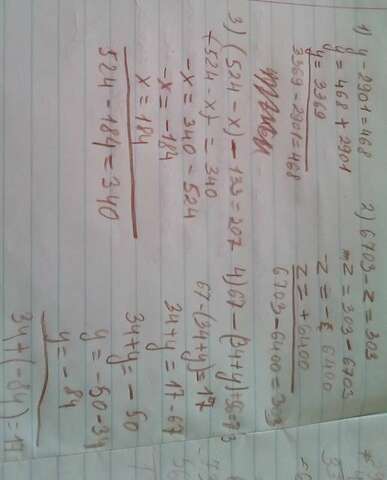 1) y - 2901 = 468
y = 468 + 2901
y = 3369
3369 - 2901 = 468
2) 6703 - z = 303
-z = 303 - 6703
-z = - 6400
z = + 6400
6703 - 6400 = 303
3) (524 - x) - 133 = 207
(524 - x) = 340
-x = 340 - 524
-x = -184
x = 184
524 - 184 = 340
4) 67 - (34 + y)
67 - (34 + y) = 17
34 + y = 17 - 67
34 + y = - 50
y = - 50 - 34
y = - 84
34 + (- 84) =